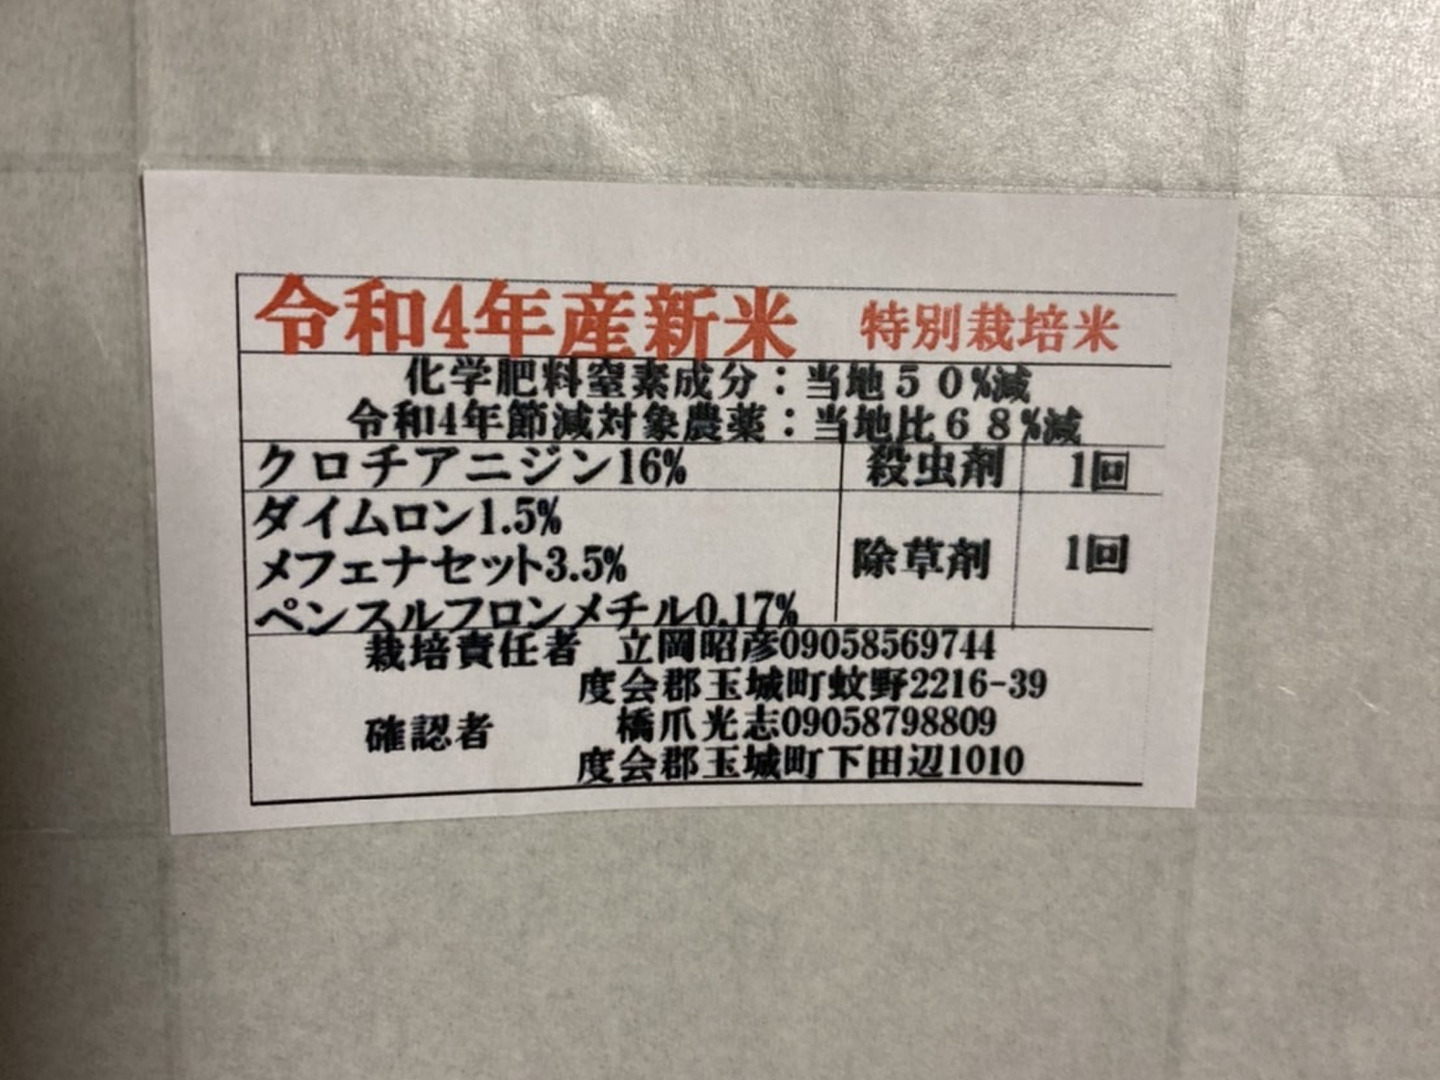 令和4年産新米 特別栽培米
化学肥料窒素成分：当地５０%減
令和4年節減対象農薬：当地比６８%減
クロチアニジン16% 殺虫剤 1回
ダイムロン1.5%
メフェナセット3.5% 除草剤 1回
ペンスルフロンメチル0.17%
栽培責任者 立岡昭彦09058569744
度会郡玉城町蚊野2216-39
確認者 橋爪光志09058798809
度会郡玉城町下田辺1010